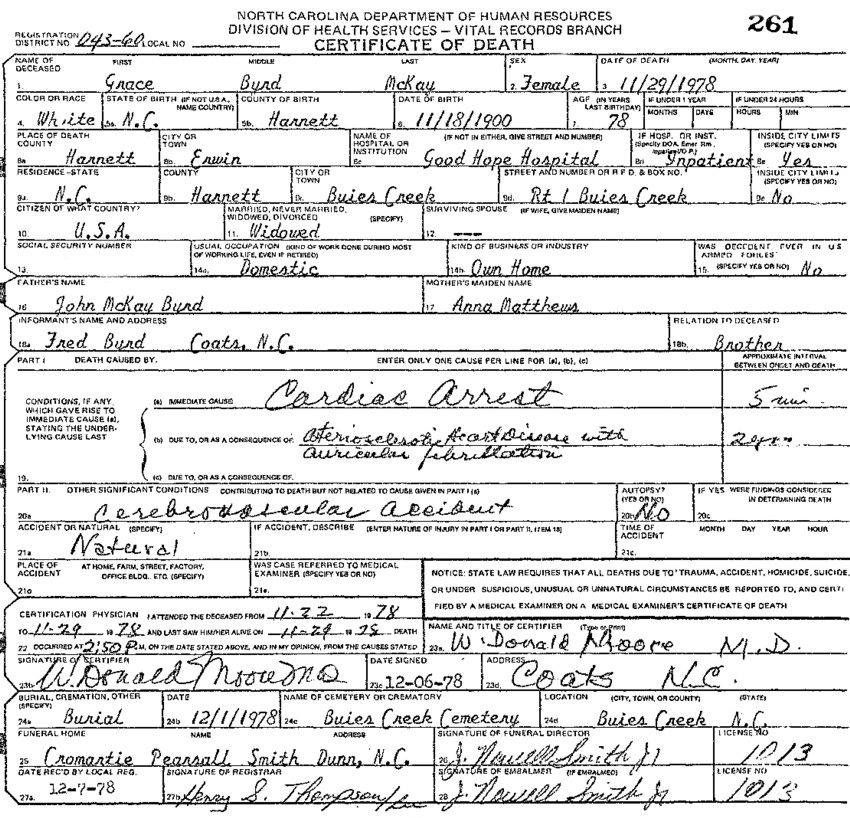 NORTH CAROLINA DEPARTMENT OF HUMAN RESOURCES
DIVISION OF HEALTH SERVICES – VITAL RECORDS BRANCH
CERTIFICATE OF DEATH
261
REGISTRATION DISTRICT NO. 043-60 LOCAL NO.
NAME OF DECEASED FIRST MIDDLE LAST SEX DATE OF DEATH (MONTH, DAY, YEAR)
1. Grace Byrd McKay 2. Female 3. 11/29/1978
COLOR OR RACE STATE OF BIRTH (IF NOT U.S.A., NAME COUNTRY) COUNTY OF BIRTH DATE OF BIRTH AGE (IN YEARS LAST BIRTHDAY) IF UNDER 1 YEAR IF UNDER 24 HOURS
MONTHS DAYS HOURS MIN
4. White 5a. N.C. 5b. Harnett 6. 11/18/1900 7. 78
PLACE OF DEATH COUNTY CITY OR TOWN NAME OF HOSPITAL OR INSTITUTION (IF NOT IN EITHER, GIVE STREET AND NUMBER) IF HOSP. OR INST. (Specify DOA, Emer Rm, Inpatient/O.P.) INSIDE CITY LIMITS (SPECIFY YES OR NO)
8a Harnett 8b. Erwin 8c Good Hope Hospital 8d Inpatient 8e Yes
RESIDENCE-STATE COUNTY CITY OR TOWN STREET AND NUMBER OR R F D. & BOX NO. INSIDE CITY LIMITS (SPECIFY YES OR NO)
9a. N.C. 9b. Harnett 9c. Buies Creek 9d. Rt 1 Buies Creek 9e No
CITIZEN OF WHAT COUNTRY? MARRIED, NEVER MARRIED, WIDOWED, DIVORCED (SPECIFY) SURVIVING SPOUSE (IF WIFE, GIVE MAIDEN NAME)
10. U.S.A. 11. Widowed 12. ---
SOCIAL SECURITY NUMBER USUAL OCCUPATION (KIND OF WORK DONE DURING MOST OF WORKING LIFE, EVEN IF RETIRED) KIND OF BUSINESS OR INDUSTRY WAS DECEDENT EVER IN US ARMED FORCES? (SPECIFY YES OR NO)
13. 14a. Domestic 14b. Own Home 15. No
FATHER'S NAME MOTHER'S MAIDEN NAME
16 John McKay Byrd 17 Anna Matthews
INFORMANT'S NAME AND ADDRESS RELATION TO DECEASED
18a Fred Byrd Coats, N.C. 18b. Brother
PART I DEATH CAUSED BY. ENTER ONLY ONE CAUSE PER LINE FOR (a), (b), (c) APPROXIMATE INTERVAL BETWEEN ONSET AND DEATH
CONDITIONS, IF ANY, WHICH GAVE RISE TO IMMEDIATE CAUSE (a), STATING THE UNDERLYING CAUSE LAST
(a) IMMEDIATE CAUSE Cardiac Arrest 5 min.
(b) DUE TO, OR AS A CONSEQUENCE OF. Aterioscleroti Heart Disease with
auricular fibrillation
19. (c) DUE TO, OR AS A CONSEQUENCE OF.
PART II. OTHER SIGNIFICANT CONDITIONS CONTRIBUTING TO DEATH BUT NOT RELATED TO CAUSE GIVEN IN PART I (a) AUTOPSY? (YES OR NO) IF YES WERE FINDINGS CONSIDERED IN DETERMINING DEATH
20a Cerebrovascular Accident 20b No 20c
ACCIDENT OR NATURAL (SPECIFY) IF ACCIDENT, DESCRIBE (ENTER NATURE OF INJURY IN PART I OR PART II, ITEM 18) TIME OF ACCIDENT MONTH DAY YEAR HOUR
21a Natural 21b. 21c.
PLACE OF ACCIDENT AT HOME, FARM, STREET, FACTORY, OFFICE BLDG., ETC. (SPECIFY) WAS CASE REFERRED TO MEDICAL EXAMINER (SPECIFY YES OR NO)
21d 21e.
NOTICE: STATE LAW REQUIRES THAT ALL DEATHS DUE TO TRAUMA, ACCIDENT, HOMICIDE, SUICIDE,
OR UNDER SUSPICIOUS, UNUSUAL OR UNNATURAL CIRCUMSTANCES BE REPORTED TO, AND CERTI
FIED BY A MEDICAL EXAMINER ON A MEDICAL EXAMINER'S CERTIFICATE OF DEATH
CERTIFICATION PHYSICIAN I ATTENDED THE DECEASED FROM 11-22 19 78
TO 11-29 19 78 AND LAST SAW HIM/HER ALIVE ON 11-29 19 78 DEATH
22 OCCURRED AT 2:50 P.M, ON THE DATE STATED ABOVE, AND IN MY OPINION, FROM THE CAUSES STATED
NAME AND TITLE OF CERTIFIER (Type or Print)
23a. W. Donald Moore M.D.
SIGNATURE OF CERTIFIER DATE SIGNED ADDRESS
23b W. Donald Moore MD 23c 12-06-78 23d. Coats N.C.
BURIAL, CREMATION, OTHER (SPECIFY) DATE NAME OF CEMETERY OR CREMATORY LOCATION (CITY, TOWN, OR COUNTY) (STATE)
24a Burial 24b 12/1/1978 24c Buies Creek Cemetery 24d Buies Creek N.C.
FUNERAL HOME NAME ADDRESS SIGNATURE OF FUNERAL DIRECTOR LICENSE NO
25 Cromartie Pearsall Smith Dunn, N.C. 26 J. Nowell Smith Jr 1013
DATE REC'D BY LOCAL REG. SIGNATURE OF REGISTRAR SIGNATURE OF EMBALMER (IF EMBALMED) LICENSE NO
27a. 12-7-78 27b Henry S. Thompson 28 J. Nowell Smith Jr 1013